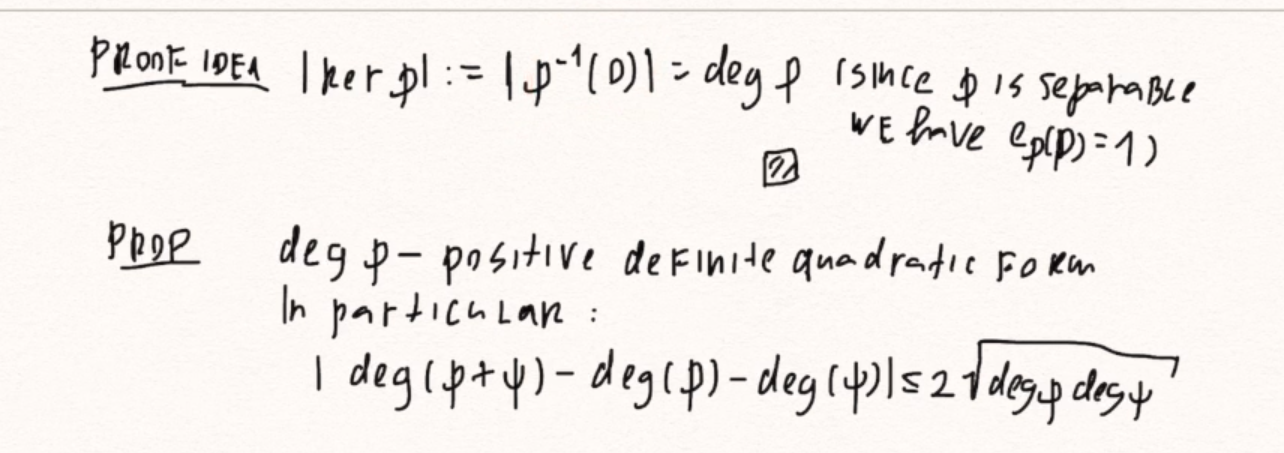 PROOF IDEA |ker φ| := |φ⁻¹(0)| = deg φ (since φ is separable
WE have eφ(P)=1)
PROP deg φ – positive definite quadratic FORM
In particular :
| deg(φ+ψ) – deg(φ) – deg(ψ)| ≤ 2√deg φ deg ψ